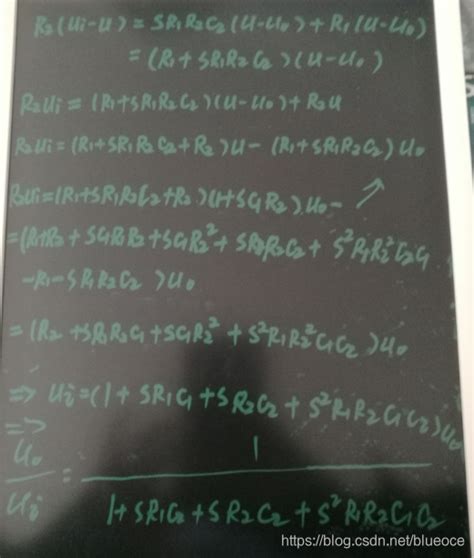 R₂(Ui-U) = SR₁R₂C₂(U-U₀)+R₁(U-U₀)
= (R₁+SR₁R₂C₂)(U-U₀)
R₂Ui = (R₁+SR₁R₂C₂)(U-U₀)+R₂U
R₂Ui=(R₁+SR₁R₂C₂+R₂)U-(R₁+SR₁R₂C₂)U₀
R₂Ui=(R₁+SR₁R₂C₂+R₂)(1+SC₁R₂)U₀- ↗
=(R₁+R₂+SC₁R₁R₂+SC₁R₂²+SR₁R₂C₂+S²R₁R₂²C₂C₁
-R₁-SR₁R₂C₂)U₀
=(R₂+SR₁R₂C₁+SC₁R₂²+S²R₁R₂²C₁C₂)U₀
=> Ui=(1+SR₁C₁+SR₂C₂+S²R₁R₂C₁C₂)U₀
=>
U₀/Ui = 1/(1+SR₁C₂+SR₂C₂+S²R₁R₂C₁C₂)
https://blog.csdn.net/blueoce